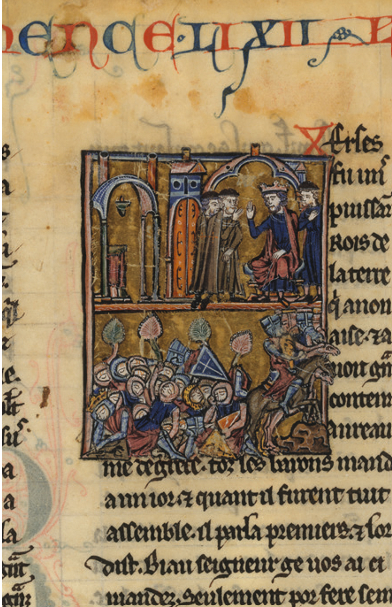 MENCE·LI·XII·
Xerses
fu
puissan
Rois de
la terre
q̃ anon
aise·⁊a
uoit gñt
conten
aureau
me degrece·toz les barons mand
a un ior·⁊ quant il furent tuit
assemble·il parla premiers·⁊ lor
dist·Biau seigneur ge uos ai ci
mandez·seulement por fere sem